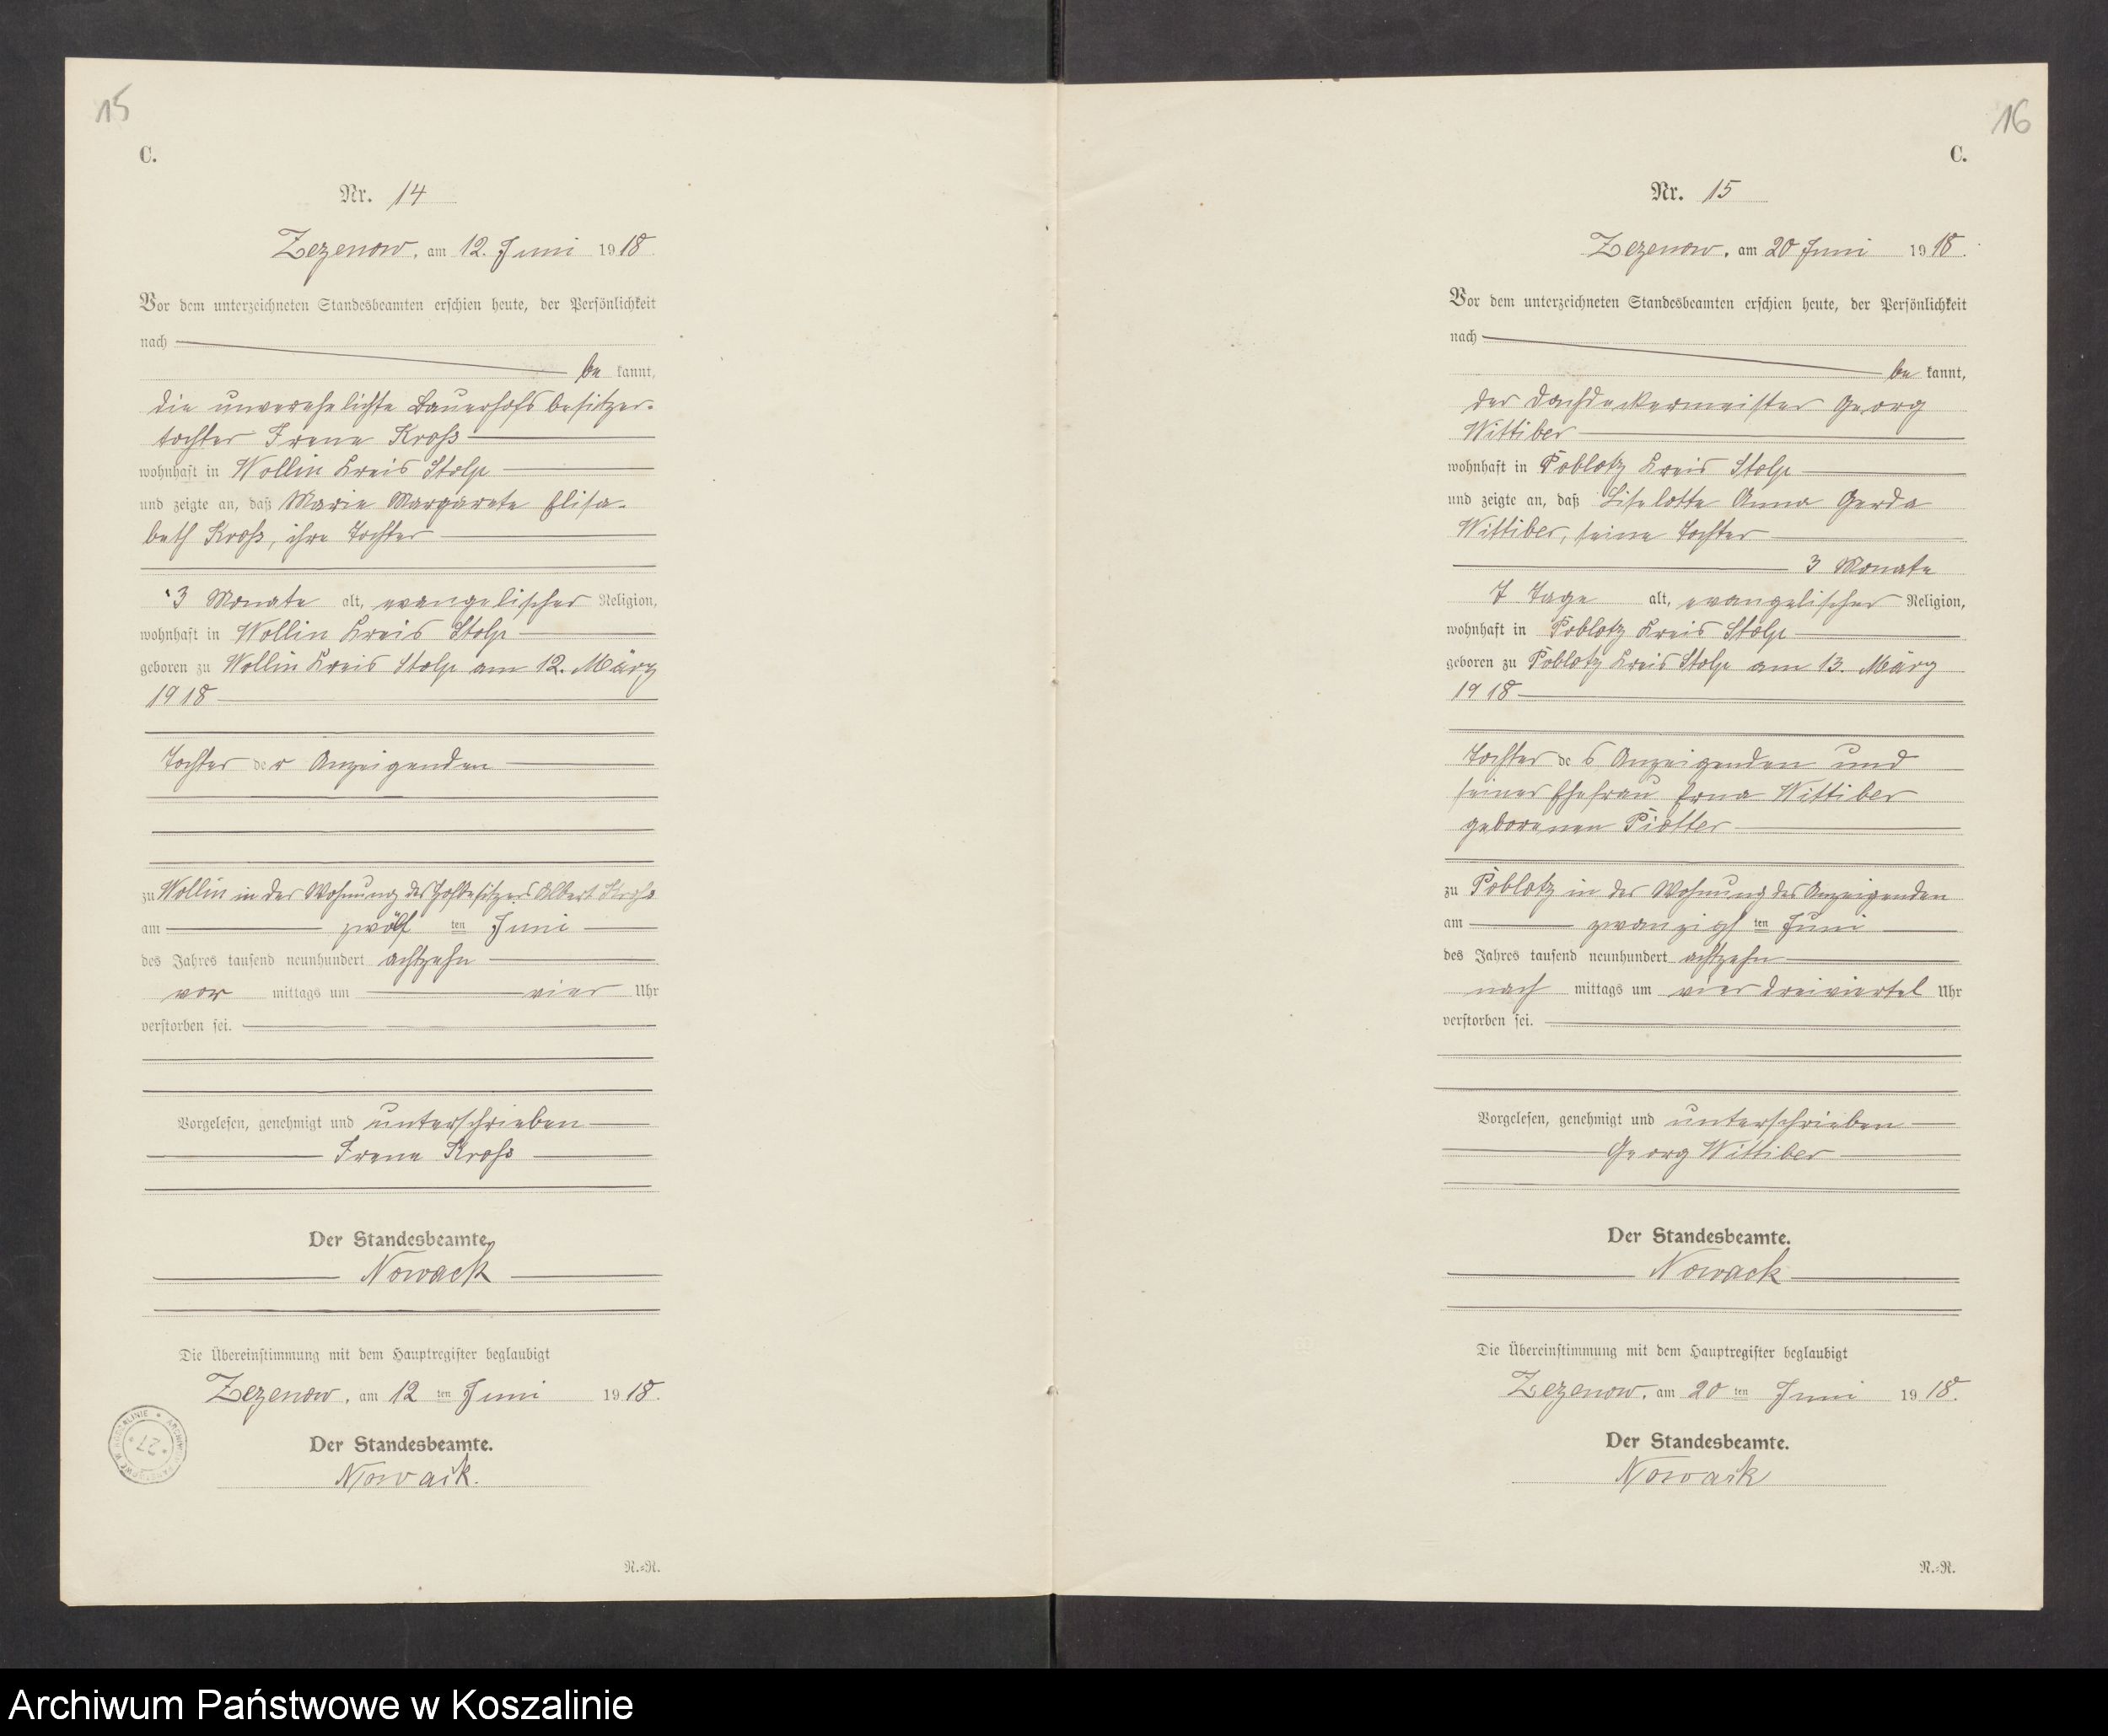 15
C.
Nr. 14
Zezenow, am 12. Juni 1918.
Vor dem unterzeichneten Standesbeamten erschien heute, der Persönlichkeit
nach
be kannt,
die unverehelichte Bauerhofsbesitzer-
tochter Irene Kroß
wohnhaft in Wollin Kreis Stolp
und zeigte an, daß Marie Margarete Elisa-
beth Kroß, ihre Tochter
3 Monate alt, evangelischer Religion,
wohnhaft in Wollin Kreis Stolp
geboren zu Wollin Kreis Stolp am 12. März
1918
Tochter der Anzeigenden
zu Wollin in der Wohnung des Hofbesitzers Albert Kroß
am zwölf ten Juni
des Jahres tausend neunhundert achtzehn
vor mittags um vier Uhr
verstorben sei.
Vorgelesen, genehmigt und unterschrieben
Irene Kroß
Der Standesbeamte.
Nowack
Die Übereinstimmung mit dem Hauptregister beglaubigt
Zezenow, am 12 ten Juni 1918.
Der Standesbeamte.
Nowack.
R.=R.
16
C.
Nr. 15
Zezenow, am 20 Juni 1918.
Vor dem unterzeichneten Standesbeamten erschien heute, der Persönlichkeit
nach
be kannt,
der Dachdeckermeister Georg
Wittiber
wohnhaft in Poblotz Kreis Stolp
und zeigte an, daß Liselotte Anna Gerda
Wittiber, seine Tochter
3 Monate
7 Tage alt, evangelischer Religion,
wohnhaft in Poblotz Kreis Stolp
geboren zu Poblotz Kreis Stolp am 13. März
1918
Tochter des Anzeigenden und
seiner Ehefrau Erna Wittiber
geborenen Piotter
zu Poblotz in der Wohnung des Anzeigenden
am zwanzigs ten Juni
des Jahres tausend neunhundert achtzehn
nach mittags um vier dreiviertel Uhr
verstorben sei.
Vorgelesen, genehmigt und unterschrieben
Georg Wittiber
Der Standesbeamte.
Nowack
Die Übereinstimmung mit dem Hauptregister beglaubigt
Zezenow, am 20 ten Juni 1918.
Der Standesbeamte.
Nowack
R.=R.
ARCHIWUM PAŃSTWOWE W KOSZALINIE
27
Archiwum Państwowe w Koszalinie